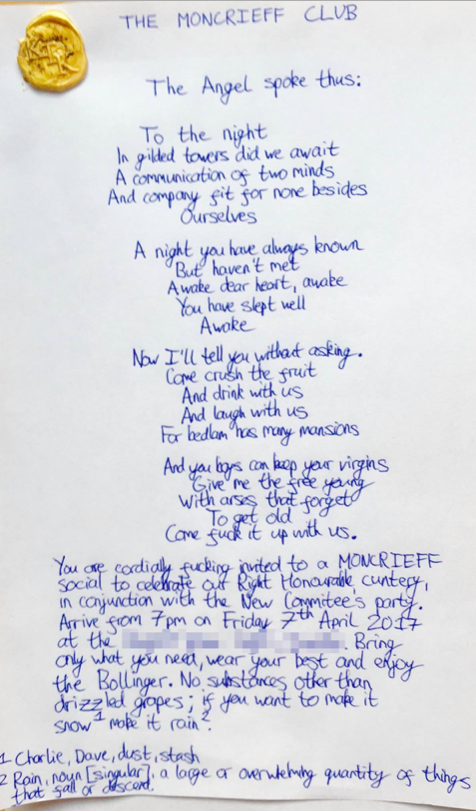 THE MONCRIEFF CLUB
The Angel spoke thus:
To the night
In gilded towers did we await
A communication of two minds
And company fit for none besides
Ourselves
A night you have always known
But haven't met
Awake dear heart, awake
You have slept well
Awake
Now I'll tell you without asking.
Come crush the fruit
And drink with us
And laugh with us
For bedlam has many mansions
And you boys can keep your virgins
Give me the free young
With arses that forget
To get old
Come fuck it up with us.
You are cordially fucking invited to a MONCRIEFF
social to celebrate our Right Honourable cuntery,
in conjunction with the New Commitee's party.
Arrive from 7pm on Friday 7th April 2017
at the . Bring
only what you need, wear your best and enjoy
the Bollinger. No substances other than
drizzled grapes; if you want to make it
snow1 make it rain2.
1 Charlie, Dave, dust, stash
2 Rain, noun [singular], a large or overwhelming quantity of things
that fall or descend.